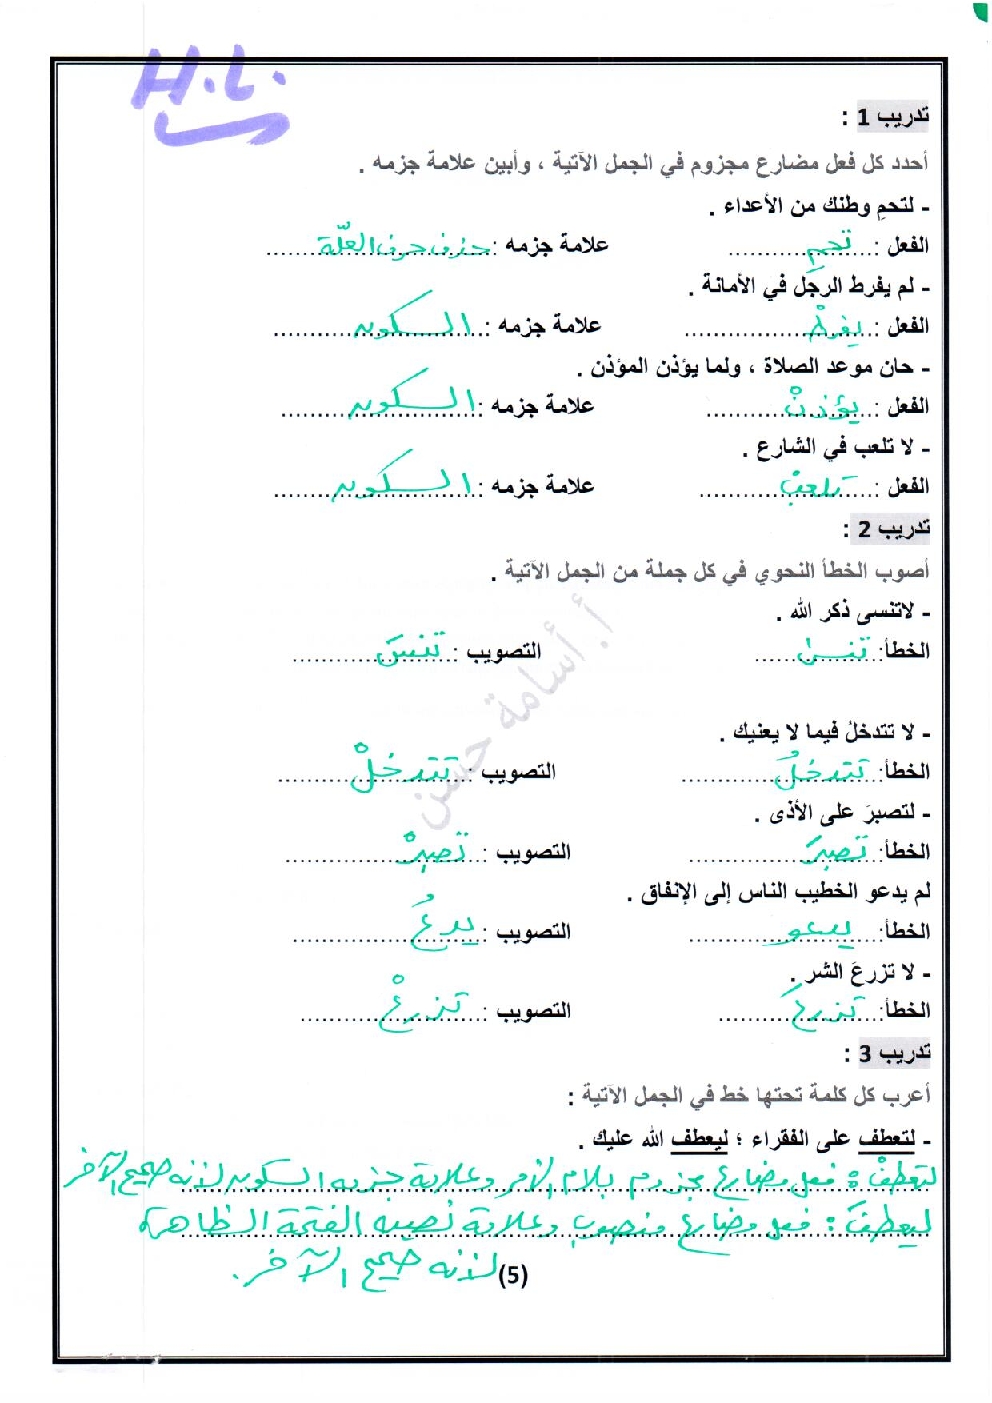 H.L.
تدريب 1 :
أحدد كل فعل مضارع مجزوم في الجمل الآتية ، وأبين علامة جزمه .
- لتحمِ وطنك من الأعداء .
الفعل : تحمِ علامة جزمه : حذف حرف العلّة
- لم يفرط الرجل في الأمانة .
الفعل : يفرطْ علامة جزمه : السكون
- حان موعد الصلاة ، ولما يؤذن المؤذن .
الفعل : يؤذنْ علامة جزمه : السكون
- لا تلعب في الشارع .
الفعل : تلعبْ علامة جزمه : السكون
تدريب 2 :
أصوب الخطأ النحوي في كل جملة من الجمل الآتية .
- لاتنسى ذكر الله .
الخطأ: تنسى التصويب : تنسَ
- لا تتدخلُ فيما لا يعنيك .
الخطأ: تتدخلُ التصويب : تتدخلْ
- لتصبرَ على الأذى .
الخطأ: تصبرَ التصويب : تصبرْ
لم يدعو الخطيب الناس إلى الإنفاق .
الخطأ: يدعو التصويب : يدعُ
- لا تزرعَ الشر .
الخطأ: تزرعَ التصويب : تزرعْ
تدريب 3 :
أعرب كل كلمة تحتها خط في الجمل الآتية :
- لتعطف على الفقراء ؛ ليعطف الله عليك .
لتعطفْ : فعل مضارع مجزوم بلام الأمر وعلامة جزمه السكون لأنه صحيح الآخر
ليعطفَ : فعل مضارع منصوب وعلامة نصبه الفتحة الظاهرة
لأنه صحيح الآخر.
(5)
أ. أسامة حسن